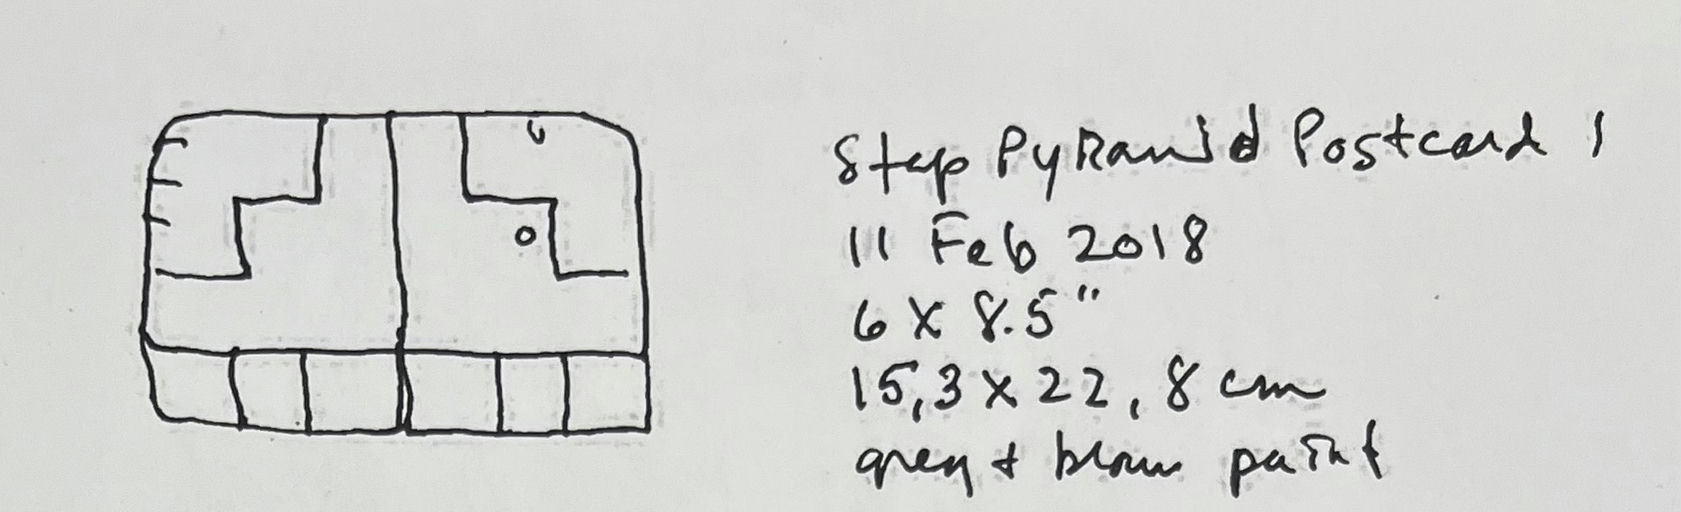 Step Pyramid Postcard 1
11 Feb 2018
6 x 8.5"
15,3 x 22,8 cm
grey + brown paint